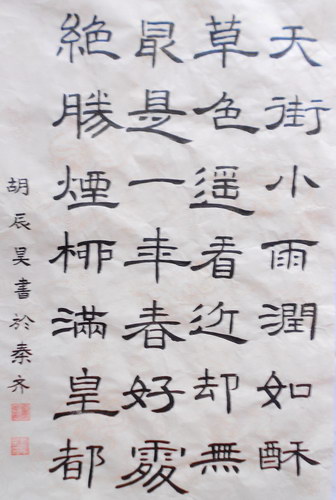 天街小雨潤如酥
草色遥看近却無
最是一年春好處
絶勝煙柳滿皇都
胡辰昊書於秦齐